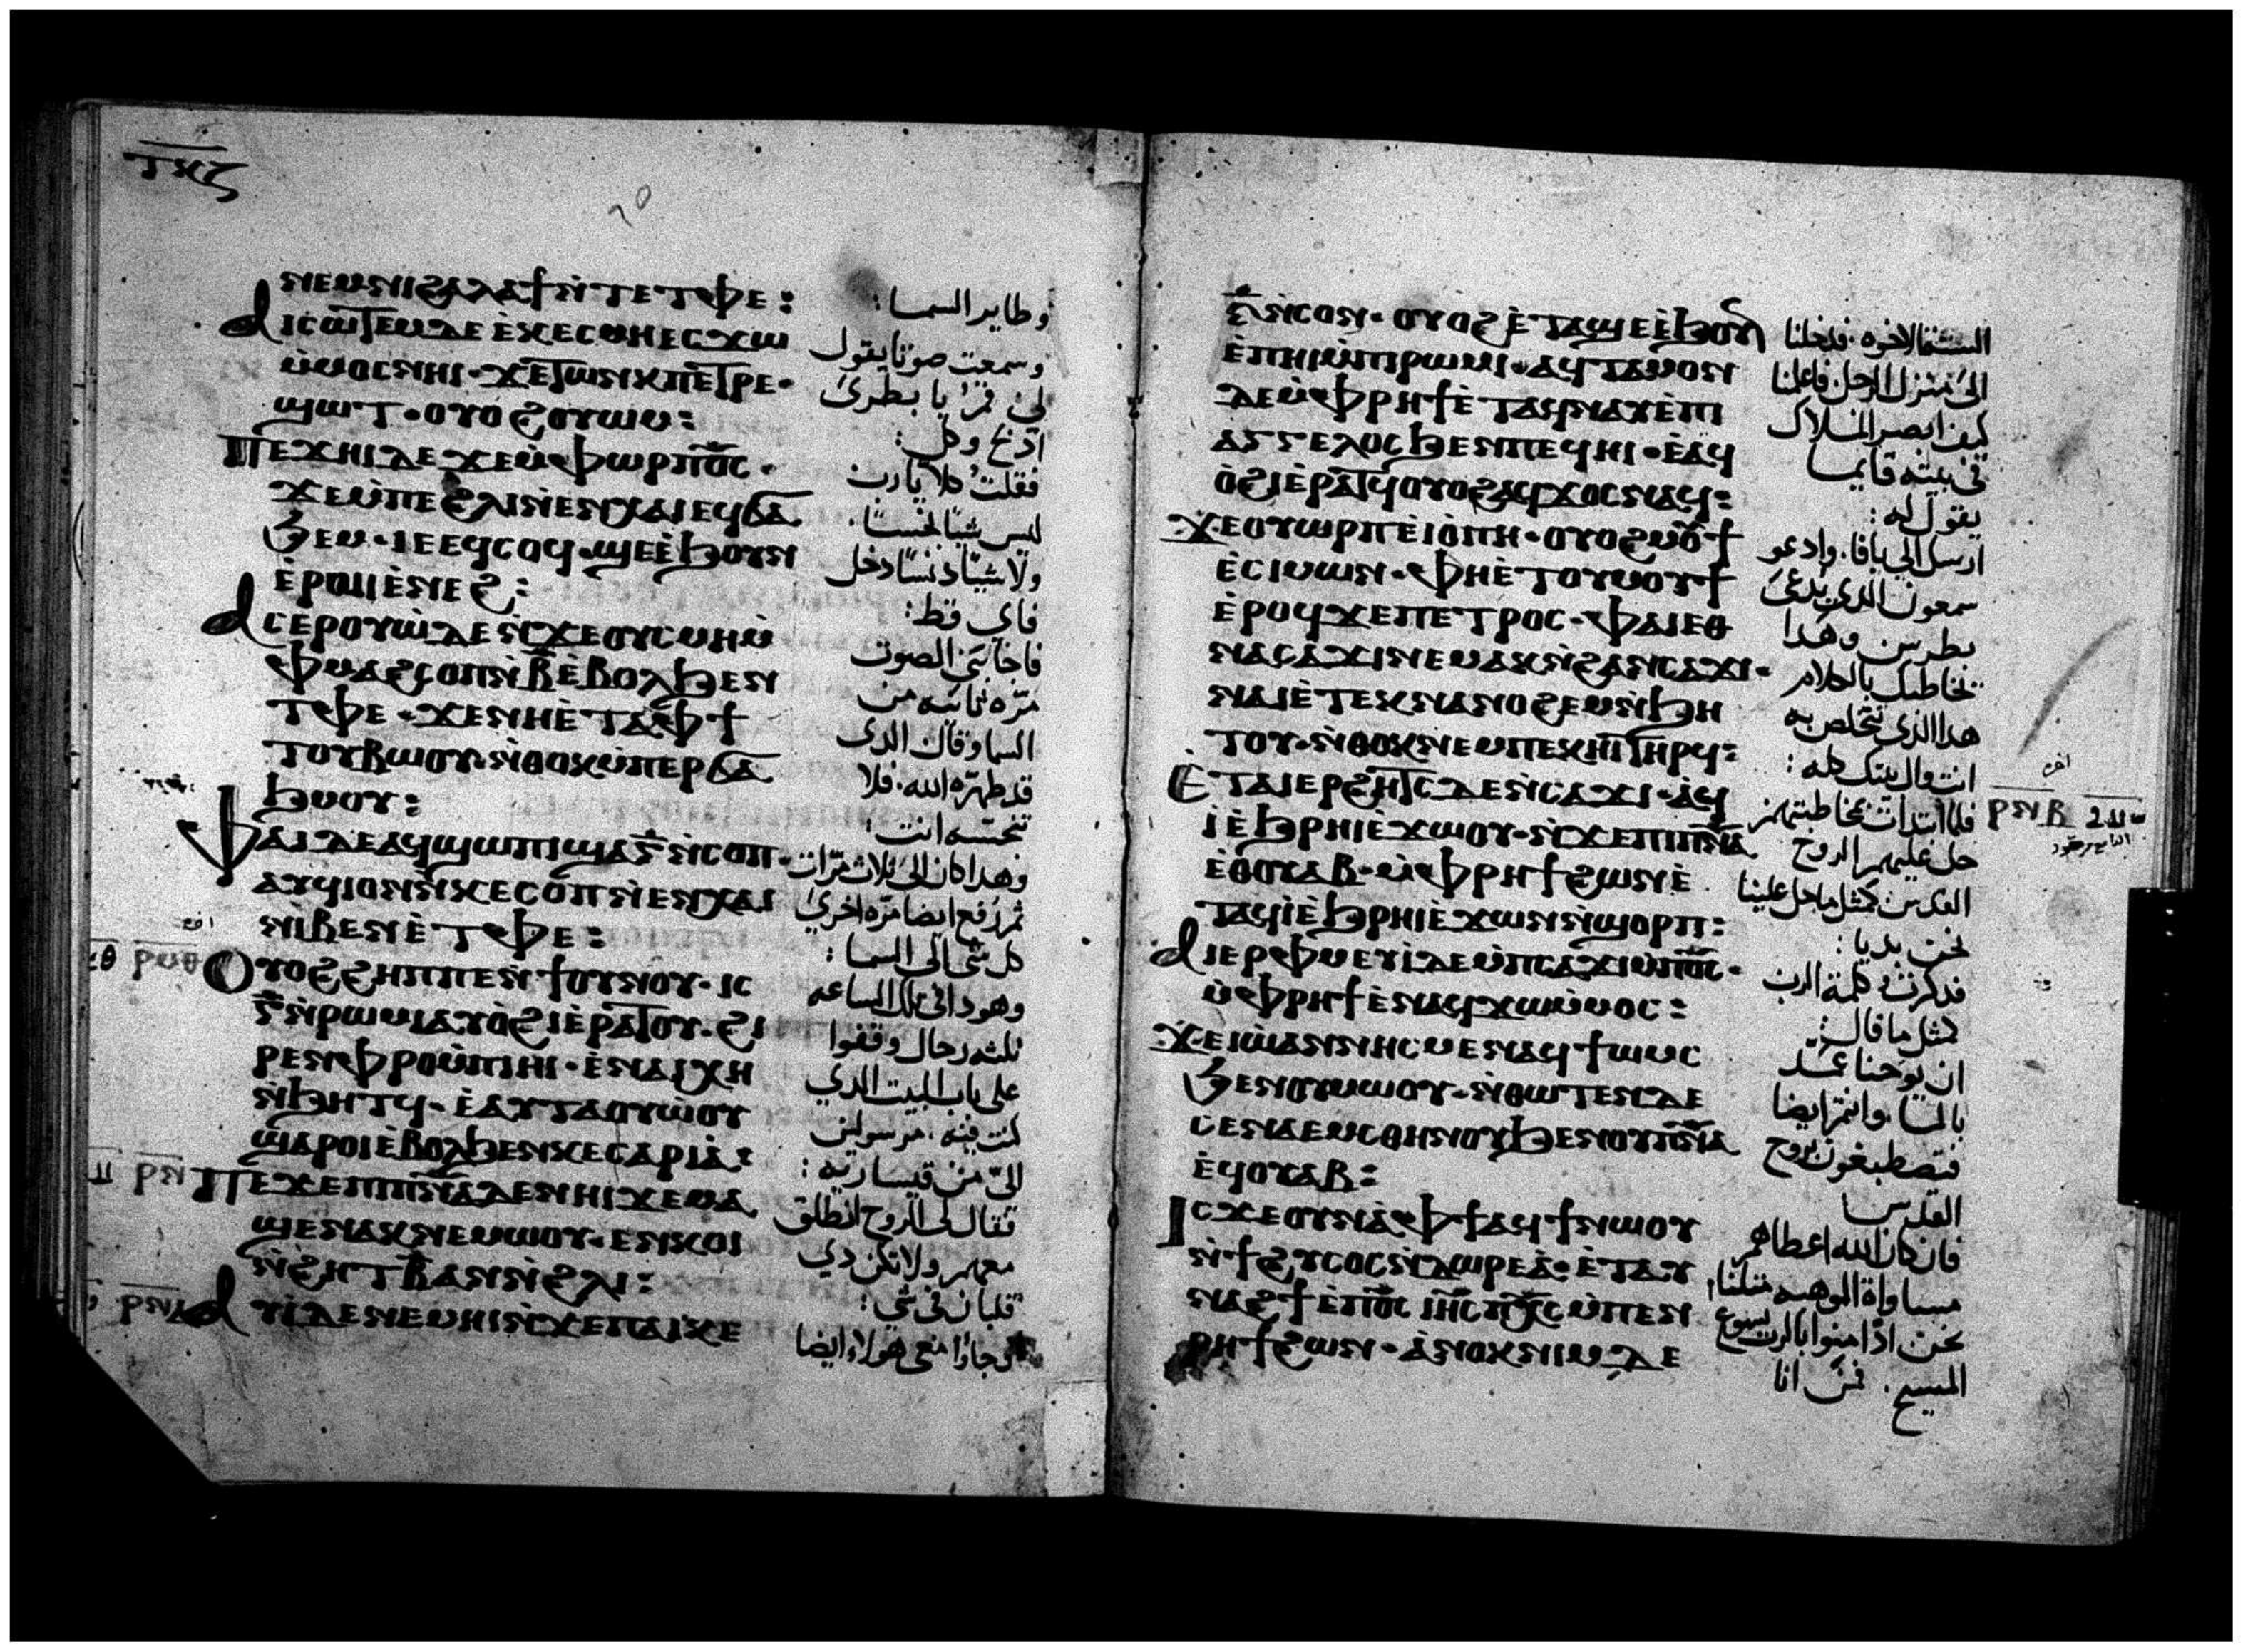 ⲧⲕⲍ
ⲛⲉⲙⲛⲓϩⲁⲗⲁϯⲛ̀ⲧⲉⲧⲫⲉ:
ⲁⲓⲥⲱⲧⲉⲙⲇⲉ ⲉ̀ⲕⲉⲥⲙⲏⲉⲥϫⲱ
ⲙ̀ⲙⲟⲥⲛⲏⲓ · ϫⲉⲧⲱⲛⲕⲡⲉⲧⲣⲉ ·
ϣⲱⲧ · ⲟⲩⲟϩⲟⲩⲱⲙ:
ⲡⲉϫⲏⲓⲇⲉ ϫⲉⲙ̀ⲫⲱⲣⲡϭⲥ ·
ϫⲉⲙ̀ⲡⲉϩⲗⲓⲛ̀ⲉⲛⲭⲁⲓⲉϥϭⲁ
ϧⲉⲙ · ⲓⲉⲉϥⲥⲟϥ · ϣⲉⲉ̀ϧⲟⲩⲛ
ⲉ̀ⲣⲱⲓⲉ̀ⲛⲉϩ:
ⲁⲥⲉⲣⲟⲩⲱ̀ⲇⲉ ⲛ̀ϫⲉⲟⲩⲥⲙⲏⲙ̀
ⲫⲙⲁϩⲥⲟⲡⲛ̀ⲃ̄ⲉ̀ⲃⲟⲗϧⲉⲛ
ⲧⲫⲉ · ϫⲉⲛⲏⲉ̀ⲧⲁⲫϯ
ⲧⲟⲩⲃⲱⲟⲩ · ⲛ̀ⲑⲟⲕⲙ̀ⲡⲉⲣϭⲁ
ϧⲙⲟⲩ:
ⲫⲁⲓⲇⲉⲁϥϣⲱⲡⲓϣⲁⲅ̄ⲛ̀ⲥⲟⲡ ·
ⲁⲩϥⲓⲟⲛⲛ̀ⲕⲉⲥⲟⲡⲛ̀ⲉⲛⲭⲁⲓ
ⲛⲓⲃⲉⲛⲉ̀ⲧⲫⲉ:
ⲟⲩⲟϩϩⲏⲡⲡⲉⲛϯⲟⲩⲛⲟⲩ · ⲓⲥ
ⲅ̄ⲛ̀ⲣⲱⲙⲓⲁⲩⲟ̀ϩⲓⲉ̀ⲣⲁⲧⲟⲩ · ϩⲓ
ⲣⲉⲛⲫⲣⲟⲙ̀ⲡⲓⲏⲓ · ⲉ̀ⲛⲁⲓⲭⲏ
ⲛ̀ϧⲏⲧϥ · ⲉ̀ⲁⲩⲧⲁⲟⲩⲱⲟⲩ
ϣⲁⲣⲟⲓⲉ̀ⲃⲟⲗϧⲉⲛⲕⲉⲥⲁⲣⲓⲁ̀:
ⲡⲉϫⲉⲡⲓⲡⲛⲁⲇⲉⲛⲏⲓϫⲉⲙⲁ
ϣⲉⲛⲁⲕⲛⲉⲙⲱⲟⲩ · ⲉⲛⲕⲟⲓ
ⲛ̀ϩⲏⲧⲃ̄ⲁⲛⲛ̀ϩⲗⲓ:
ⲁⲩⲓ̀ⲇⲉⲛⲉⲙⲏⲓⲛ̀ϫⲉⲡⲁⲓⲕⲉ
وطاير السما:
وسمعت صوتا يقول
لي قم يا بطرس
اذبح وكل:
فقلت كلا يا رب
ليس شيئا نجسا.
ولا شيئا دنسا دخل
فاي قط:
فاجابني الصوت
مرة ثانيه من
السما وقال الدى
قد طهره الله. فلا
تنجسه انت:
وهدا كان الى ثلاث مرات
ثم رفع ايضا مره اخرى
كل شى الى السما:
وهودا فى تلك الساعه
ثلثه رجال وقفوا
على باب البيت الدي
كنت فيه. مرسولين
الى من قيساريه:
فقال لى الروح انطلق
معهم ولا تكن دي
قلبان فى شى:
وجاوا معى هولاء ايضا
ⲋ̄ⲛ̀ⲥⲟⲛ · ⲟⲩⲟϩⲉ̀ⲧⲁϣⲉⲉ̀ϧⲟⲩⲛ
ⲉ̀ⲡⲏⲓⲙ̀ⲡⲓⲣⲱⲙⲓ · ⲁϥⲧⲁⲙⲟⲛ
ⲇⲉⲙ̀ⲫⲣⲏϯⲉ̀ⲧⲁϥⲛⲁⲩⲉ̀ⲡⲓ
ⲁⲅⲅⲉⲗⲟⲥϧⲉⲛⲡⲉϥⲏⲓ · ⲉ̀ⲁϥ
ⲟ̀ϩⲓⲉ̀ⲣⲁⲧϥⲟⲩⲟϩⲁϥϫⲟⲥⲛⲁϥ:
ϫⲉⲟⲩⲱⲣⲡⲉ̀ⲓⲟ̀ⲡⲏ · ⲟⲩⲟϩⲙⲟⲩϯ
ⲉ̀ⲥⲓⲙⲱⲛ · ⲫⲏⲉ̀ⲧⲟⲩⲙⲟⲩϯ
ⲉ̀ⲣⲟϥϫⲉⲡⲉⲧⲣⲟⲥ · ⲫⲁⲓⲉⲑ
ⲛⲁⲥⲁϫⲓⲛⲉⲙⲁⲕⲛ̀ϩⲁⲛⲥⲁϫⲓ ·
ⲛⲁⲓⲉ̀ⲧⲉⲕⲛⲁⲛⲟϩⲉⲙⲛ̀ϧⲏ
ⲧⲟⲩ · ⲛ̀ⲑⲟⲕⲛⲉⲙⲡⲉⲕⲏⲓⲧⲏⲣϥ:
ⲉ̀ⲧⲁⲓⲉⲣϩⲏⲧⲥⲇⲉⲛ̀ⲥⲁϫⲓ · ⲁ̀ϥ
ⲓ̀ⲉ̀ϧⲣⲏⲓⲉ̀ϫⲱⲟⲩ · ⲛ̀ϫⲉⲡⲓⲡⲛⲁ
ⲉ̀ⲑⲟⲩⲁⲃ · ⲙ̀ⲫⲣⲏϯϩⲱⲛⲉ̀
ⲧⲁϥⲓ̀ⲉ̀ϧⲣⲏⲓⲉ̀ϫⲱⲛⲛ̀ϣⲟⲣⲡ:
ⲁⲓⲉⲣⲫⲙⲉⲩⲓ̀ⲇⲉⲙ̀ⲡⲥⲁϫⲓⲙ̀ⲡϭⲥ ·
ⲙ̀ⲫⲣⲏϯⲉ̀ⲛⲁϥϫⲱⲙ̀ⲙⲟⲥ:
ϫⲉⲓⲱⲁⲛⲛⲏⲥⲙⲉⲛⲁϥϯⲱⲙⲥ
ϧⲉⲛⲟⲩⲙⲱⲟⲩ · ⲛ̀ⲑⲱⲧⲉⲛⲇⲉ
ⲥⲉⲛⲁⲉⲙⲥⲑⲏⲛⲟⲩϧⲉⲛⲟⲩⲡⲛⲁ
ⲉϥⲟⲩⲁⲃ:
ⲓⲥϫⲉⲟⲩⲛⲁ̀ⲫϯⲁϥϯⲛⲱⲟⲩ
ⲛ̀ϯϩⲩⲥⲟⲥⲛ̀ⲇⲱⲣⲉⲁ̀ · ⲉ̀ⲧⲁⲩ
ⲛⲁϩϯⲉ̀ⲡϭⲥ ⲓⲏⲥ ⲡⲭⲥ ⲙ̀ⲡⲉⲛ
ⲣⲏϯϩⲱⲛ · ⲁ̀ⲛⲟⲕⲛⲓⲙⲇⲉ
الستة الاخوه. فدخلنا
الى منزل الرجل فاعلمنا
كيف ابصر الملاك
فى بيته قايما
يقول له:
ارسل الى يافا. وادعو
سمعون الدي يدعى
بطرس وهدا
يخاطبك بالكلام
هدا الذي تخلص به
انت وال بيتك كله:
فلما ابتدات بخاطبتهم
حل عليهم الروح
القدس كمثل ما حل علينا
نحن بديا:
فدكرت كلمة الرب
كمثل ما قال:
ان يوحنا عمد
بالما. وانتم ايضا
فتصطبغون بروح
القدس
فان كان الله اعطاهم
مساواة الموهبه مثلنا
نحن اذ امنوا بالرب يسوع
المسيح. فمن انا
ⲣⲛⲃ